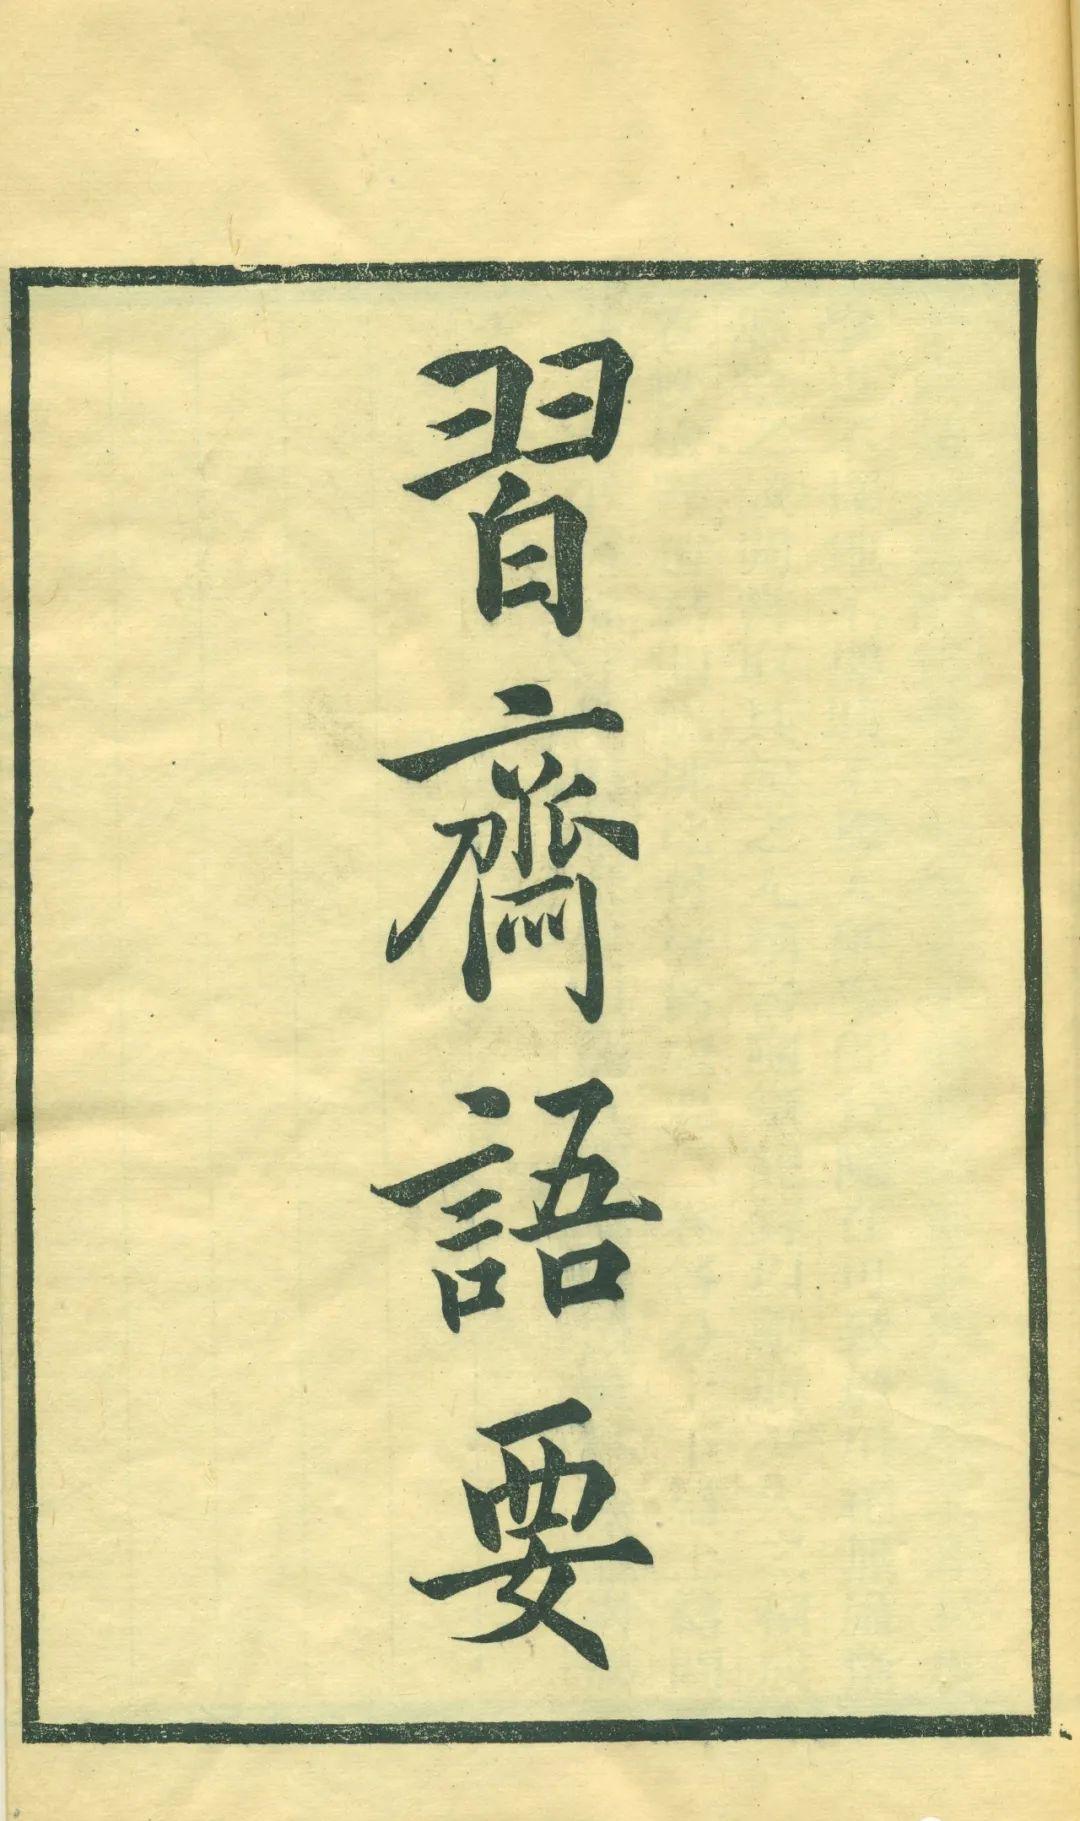 習齋語要